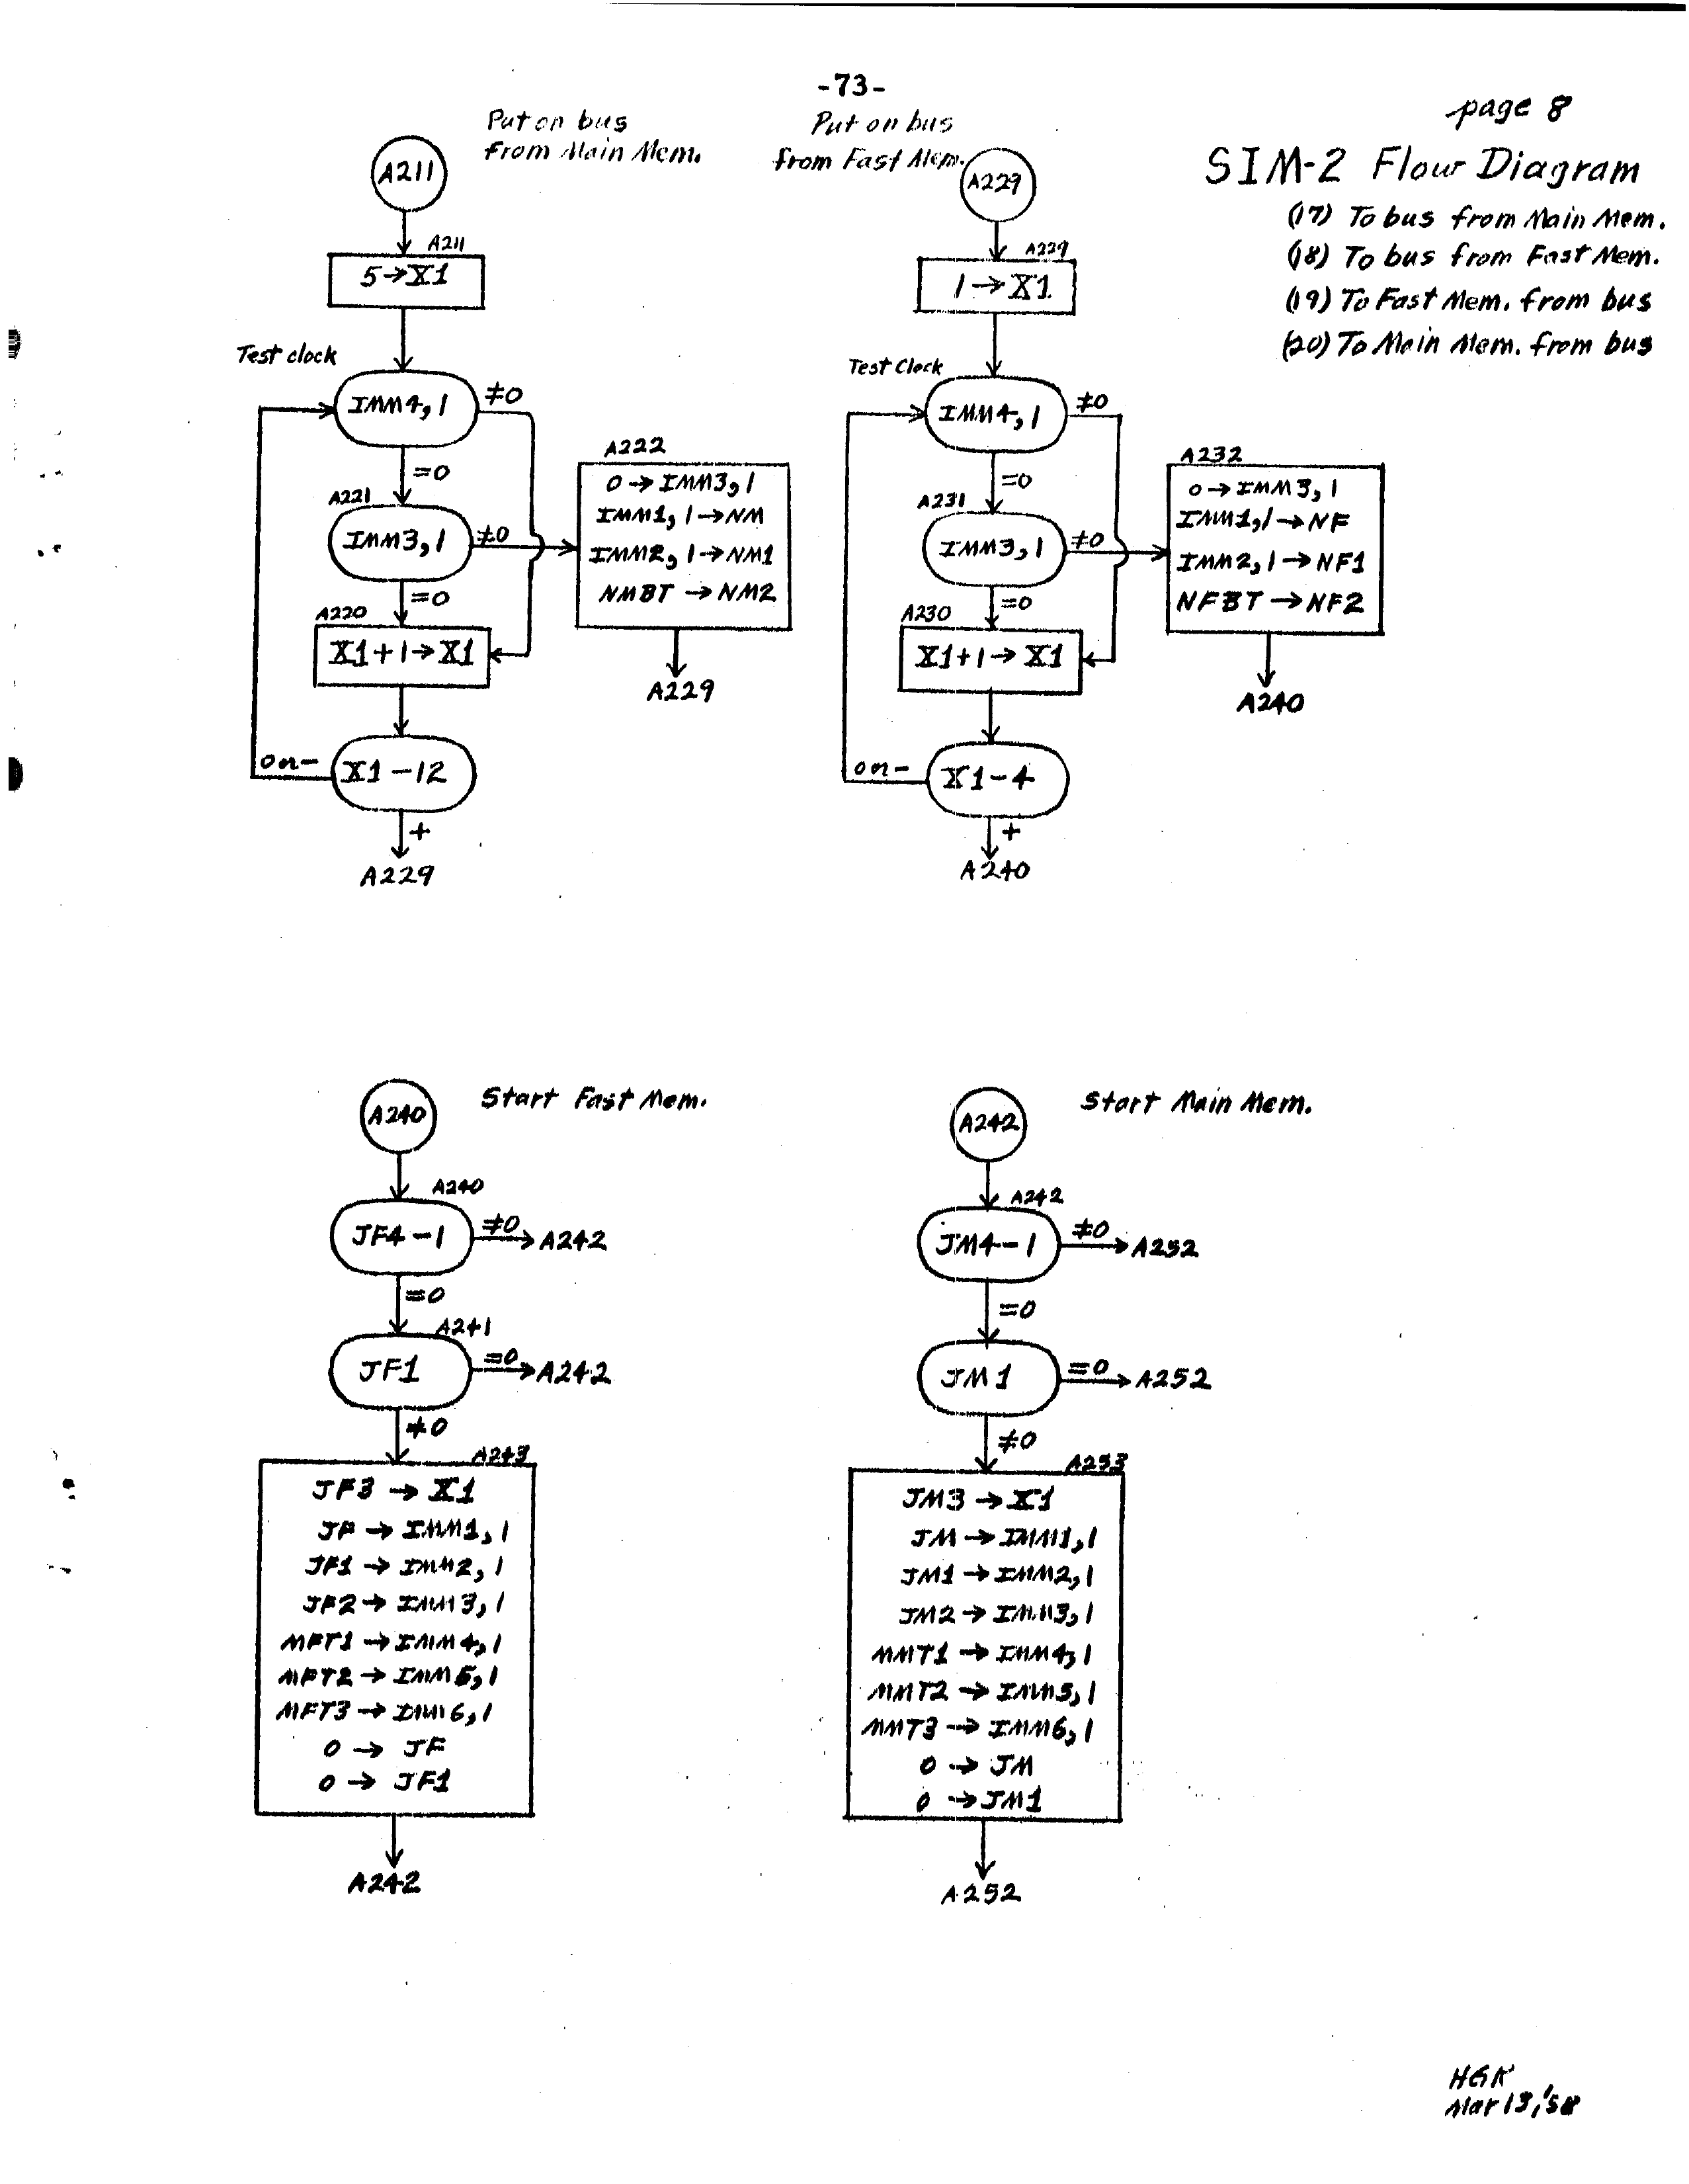 -73-
page 8
SIM-2 Flow Diagram
(17) To bus from Main Mem.
(18) To bus from Fast Mem.
(19) To Fast Mem. from bus
(20) To Main Mem. from bus
Put on bus
from Main Mem.
A211
A211
5→X1
Test clock
IMM4,1
≠0
=0
A221
IMM3,1
≠0
=0
A220
X1+1→X1
X1-12
0 or -
+
A229
A222
0→IMM3,1
IMM1,1→NM
IMM2,1→NM1
NMBT→NM2
A229
Put on bus
from Fast Mem.
A229
A229
1→X1
Test Clock
IMM4,1
≠0
=0
A231
IMM3,1
≠0
=0
A230
X1+1→X1
X1-4
0 or -
+
A240
A232
0→IMM3,1
IMM1,1→NF
IMM2,1→NF1
NFBT→NF2
A240
A240
Start Fast Mem.
A240
JF4-1
≠0
A242
=0
A241
JF1
=0
A242
≠0
A243
JF3→X1
JF→IMM1,1
JF1→IMM2,1
JF2→IMM3,1
MFT1→IMM4,1
MFT2→IMM5,1
MFT3→IMM6,1
0→JF
0→JF1
A242
A242
Start Main Mem.
A242
JM4-1
≠0
A252
=0
JM1
=0
A252
≠0
A253
JM3→X1
JM→IMM1,1
JM1→IMM2,1
JM2→IMM3,1
MMT1→IMM4,1
MMT2→IMM5,1
MMT3→IMM6,1
0→JM
0→JM1
A252
HGK
Mar 13,'58